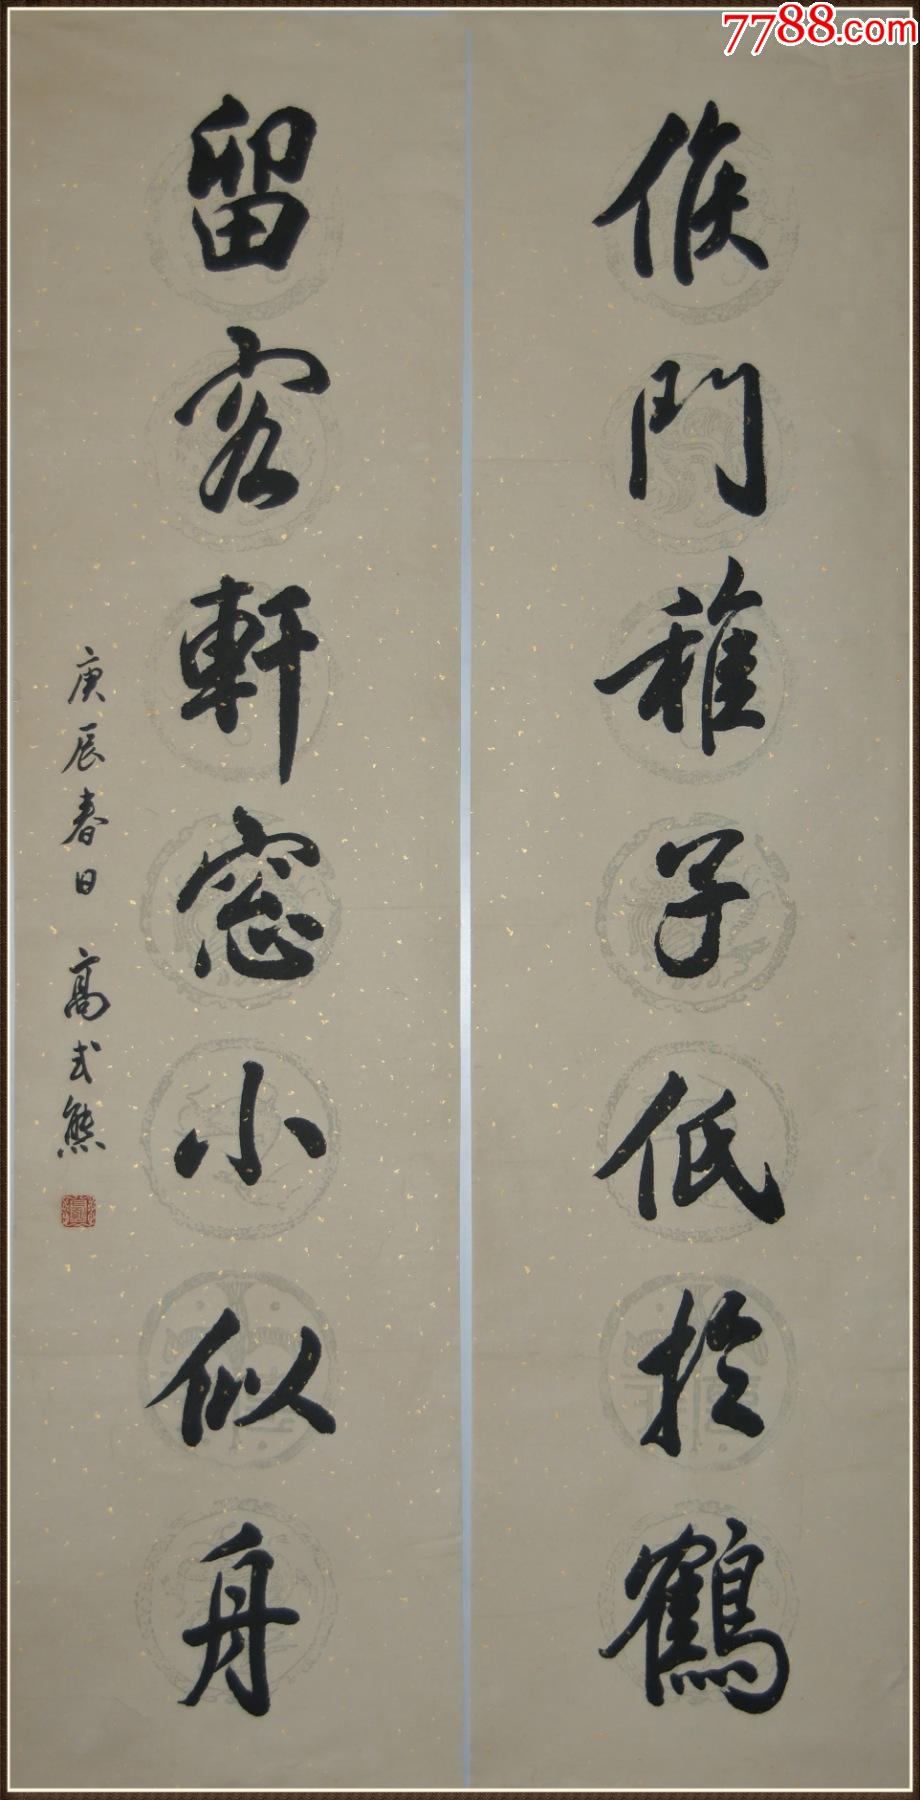 7788.com
候門稚子低於鶴
留客軒窓小似舟
庚辰春日 高式熊